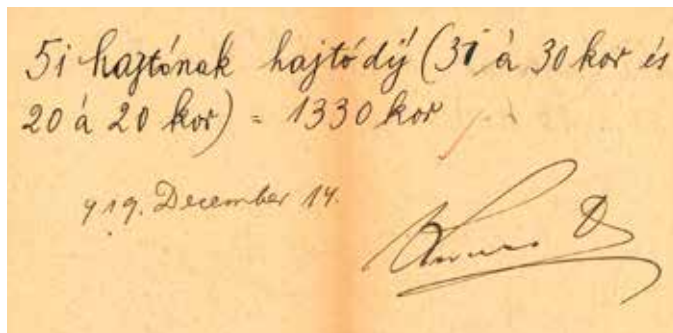 51 hajtónak hajtódíj (31 á 30 kor és
20 á 20 kor) = 1330 kor
919. December 14.